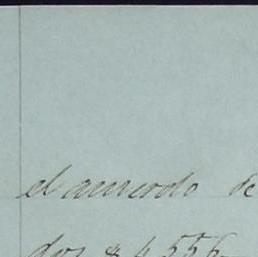 el acuerdo de
dos $ 4,556